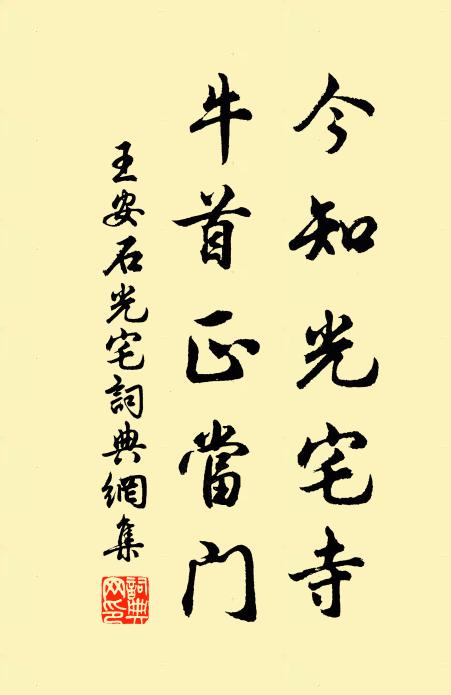 今知光宅寺
牛首正當门
王安石光宅詞典網集
詞典網印